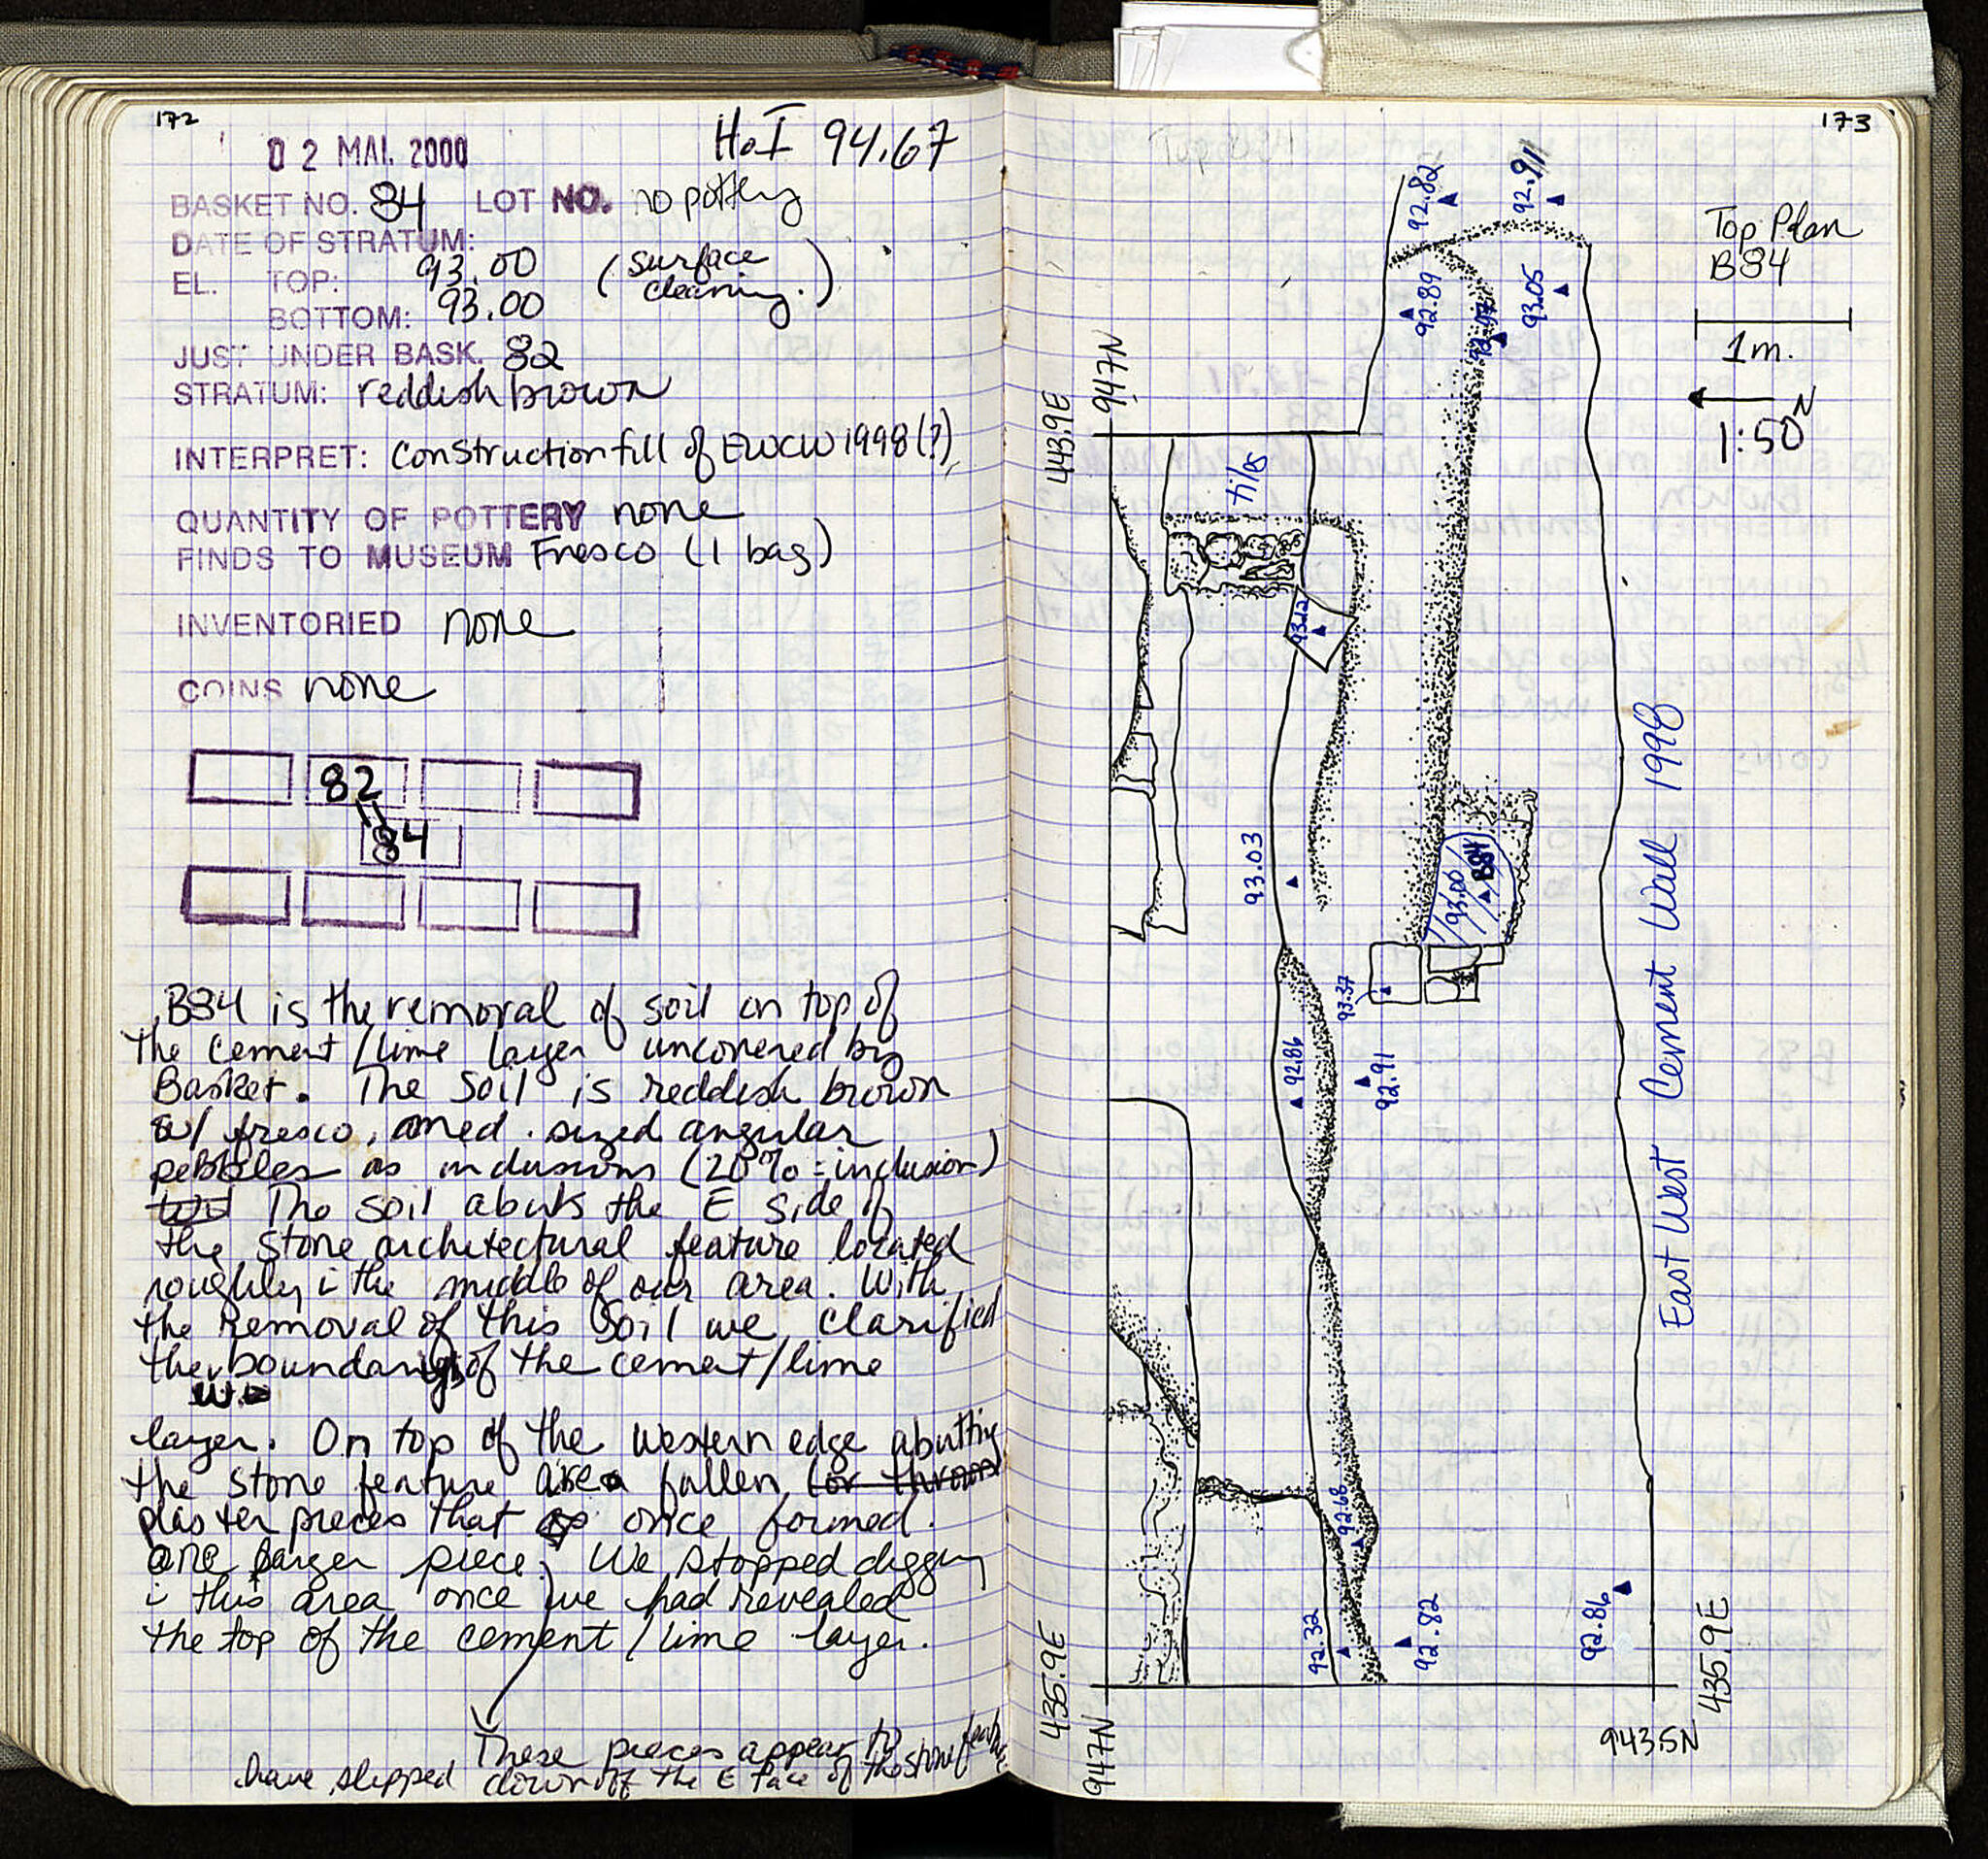 172
02 MAI. 2000
H.I 94.67
BASKET NO. 84 LOT NO. no pottery
DATE OF STRATUM:
EL. TOP: 93.00 (surface cleaning.)
BOTTOM: 93.00
JUST UNDER BASK. 82
STRATUM: reddish brown
INTERPRET: Construction fill of EWCW 1998 (?)
QUANTITY OF POTTERY none
FINDS TO MUSEUM Fresco (1 bag)
INVENTORIED none
COINS none
82
84
B84 is the removal of soil on top of
the cement/lime layer uncovered by
Basket. The soil is reddish brown
w/ fresco, med. sized angular
pebbles as inclusions (20% = inclusion)
The soil abuts the E side of
the stone architectural feature located
roughly i the middle of our area. With
the removal of this soil we clarified
the boundary of the cement/lime
layer. On top of the western edge abutting
the stone feature are fallen (or thrown
plaster pieces that once formed
one larger piece. We stopped digging
i this area once we had revealed
the top of the cement/lime layer.
These pieces appear to
have slipped down off the E face of the stone feature
173
Top Plan
B84
1m.
N
1:50
92.82
92.91
92.89
93.05
92.97
947N
443.9E
tiles
93.12
93.03
93.00
B84
93.37
92.86
92.91
East West Cement Wall 1998
92.68
92.32
92.82
92.86
435.9E
435.9E
947N
943.5N